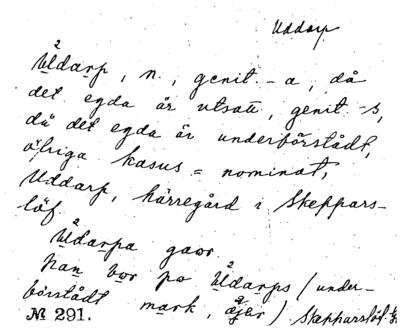 Uddarp
Ůdarp, n., genit. -a, då
det egda är utsatt, genit. -s,
då det egda är underförstådt,
öfriga kasus = nominat,
Uddarp, härregård i Skeppars-
löf.
Ůdarpa gaor.
han bor po Ůdarps (under-
förstådt mark, äjer) Skepparslöf.
№ 291.